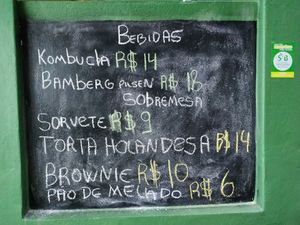 BEBIDAS
KOMBUCHA R$ 14
BAMBERG PILSEN R$ 18
SOBREMESA
SORVETE R$ 9
TORTA HOLANDESA R$ 14
BROWNIE R$ 10
PÃO DE MELADO R$ 6